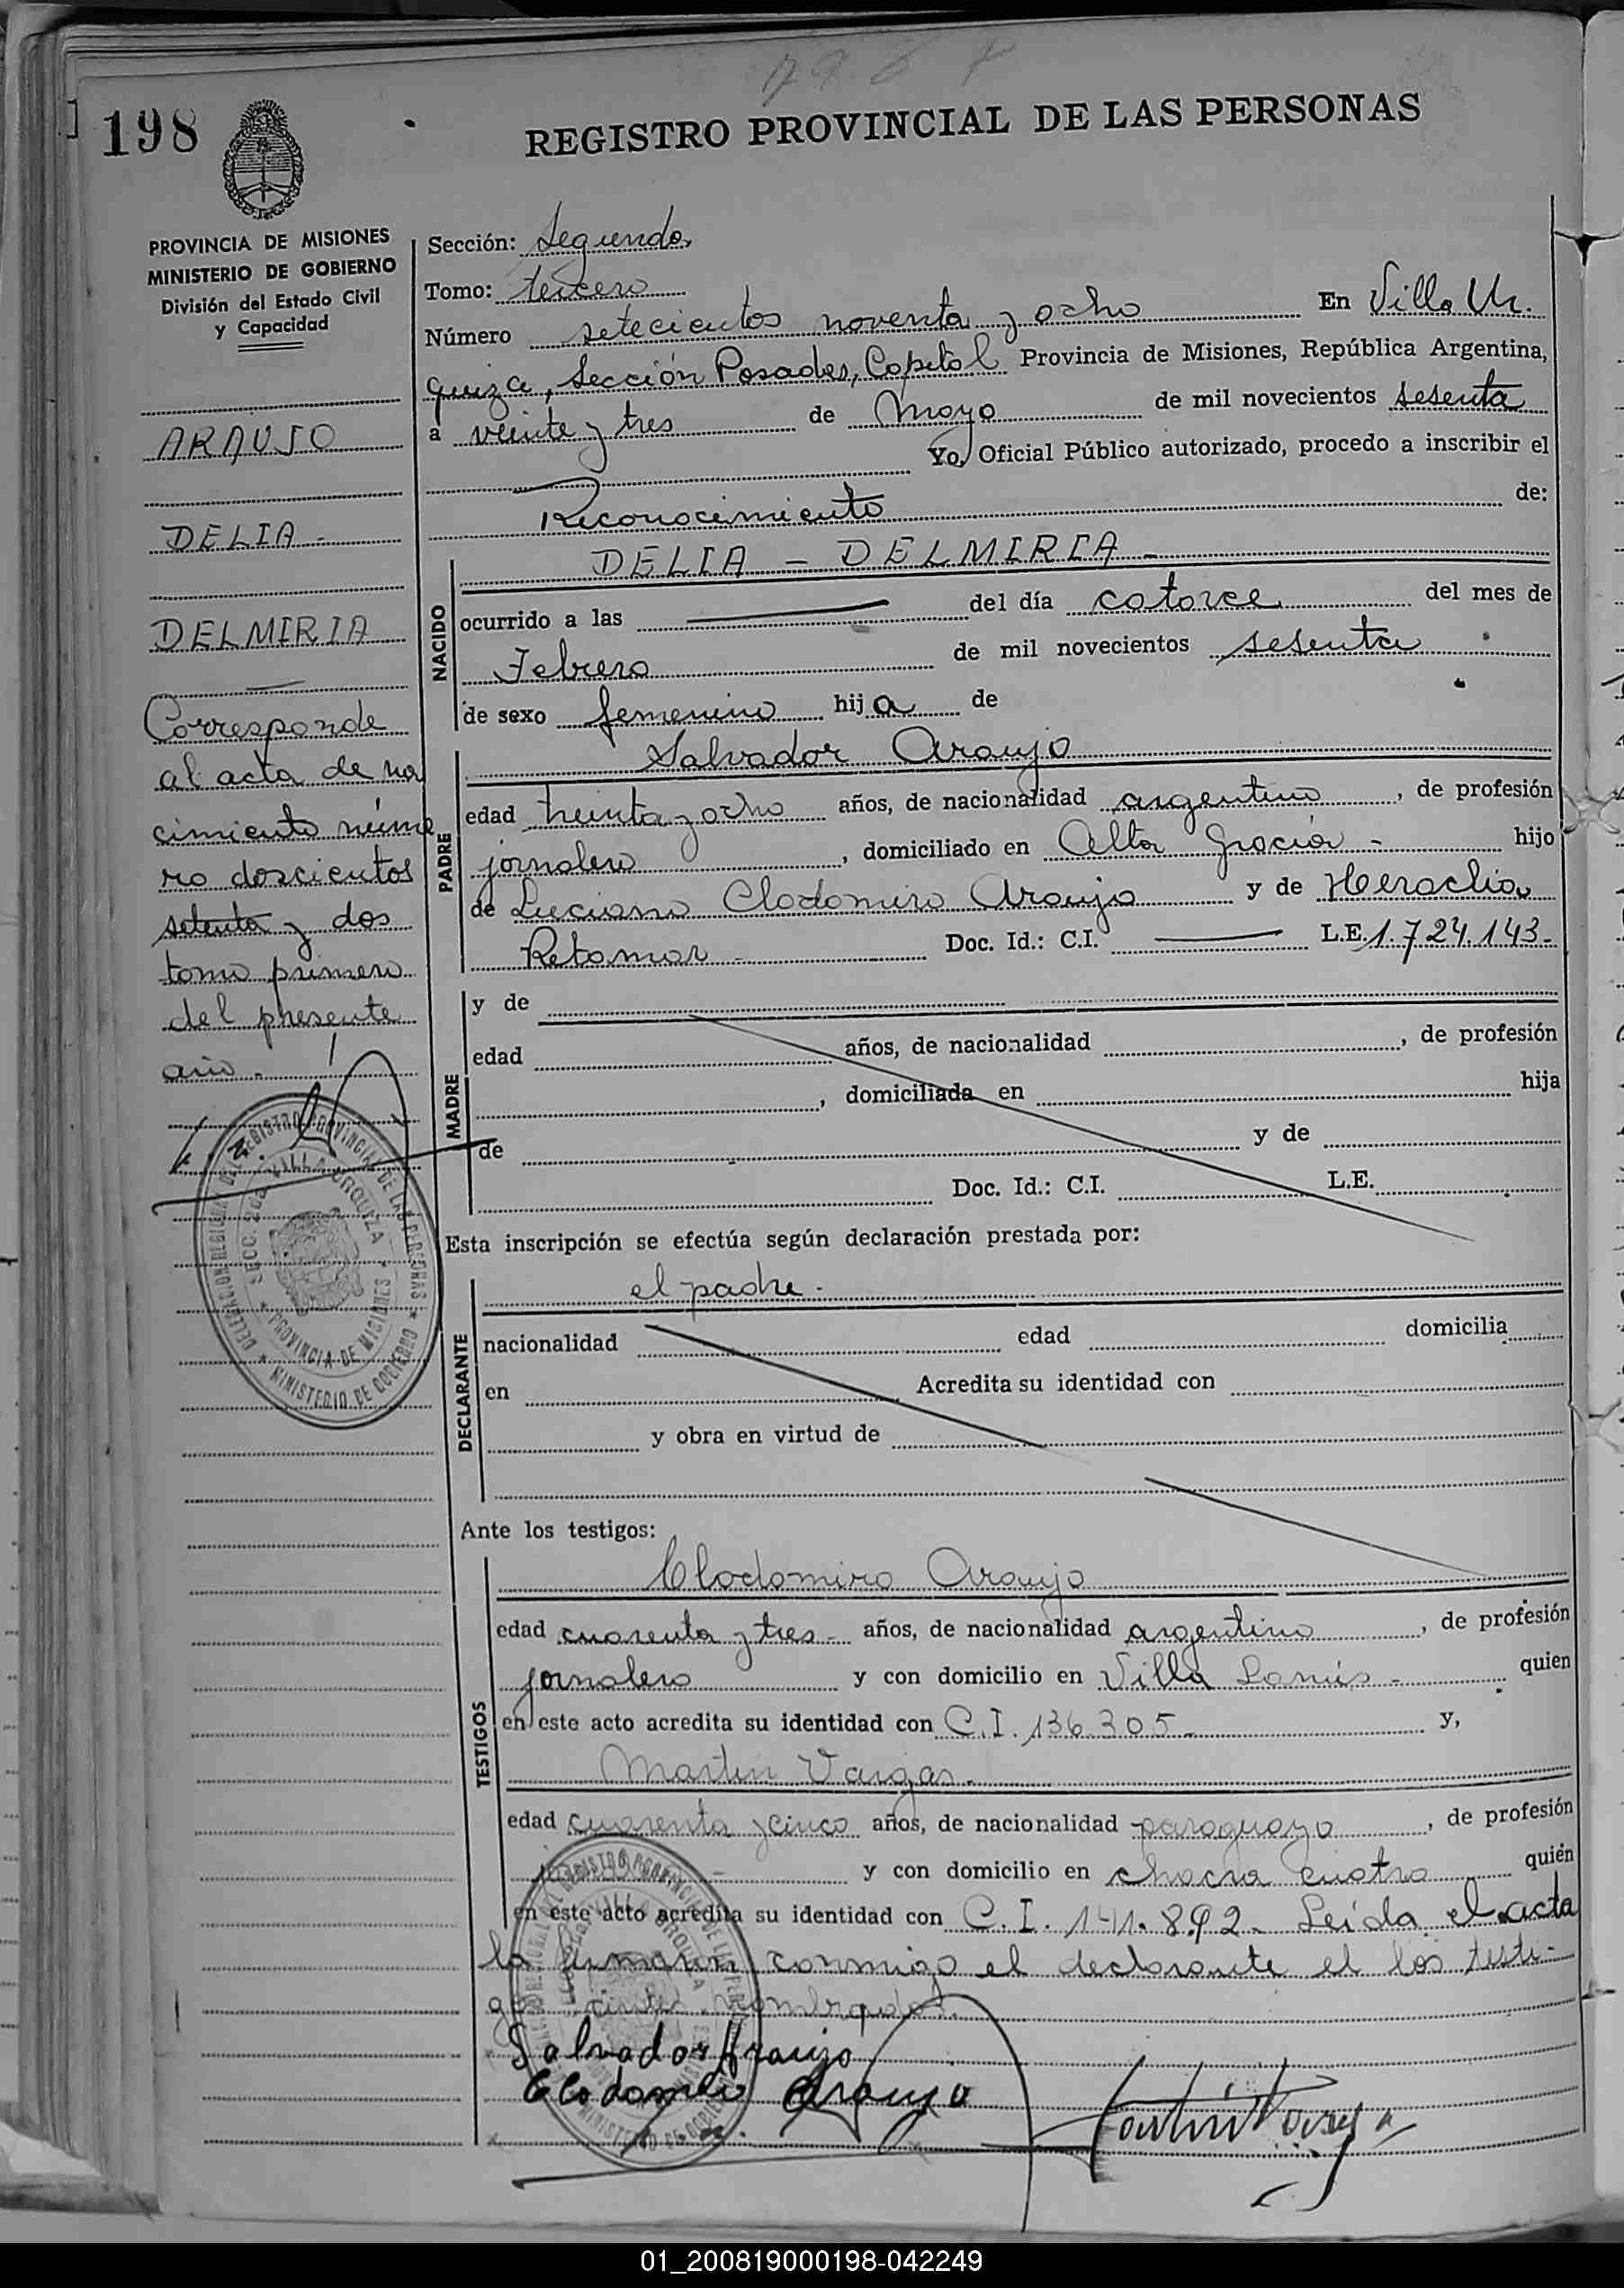 198
REGISTRO PROVINCIAL DE LAS PERSONAS
PROVINCIA DE MISIONES
MINISTERIO DE GOBIERNO
División del Estado Civil
y Capacidad
ARAUJO
DELIA -
DELMIRIA
Corresponde
al acta de na
cimiento núme
ro doscientos
setenta y dos
tomo primero
del presente
año.-
Sección: Segunda
Tomo: tercero
Número setecientos noventa y ocho En Villa Ur.
quiza, Sección Posadas, Capital Provincia de Misiones, República Argentina,
a veinte y tres de Mayo de mil novecientos sesenta
Yo, Oficial Público autorizado, procedo a inscribir el
Reconocimiento de:
NACIDO
DELIA - DELMIRIA -
ocurrido a las del día catorce del mes de
Febrero de mil novecientos sesenta
de sexo femenino hija de
PADRE
Salvador Araujo
edad treinta y ocho años, de nacionalidad argentino, de profesión
jornalero, domiciliado en Alta Gracia - hijo
de Luciano Clodomiro Araujo y de Heraclia
Retamar - Doc. Id.: C.I. L.E. 1.724.143-
MADRE
y de
edad años, de nacionalidad , de profesión
, domiciliada en hija
de y de
Doc. Id.: C.I. L.E.
Esta inscripción se efectúa según declaración prestada por:
DECLARANTE
el padre -
nacionalidad edad domicilia
en Acredita su identidad con
y obra en virtud de
Ante los testigos:
TESTIGOS
Clodomiro Araujo
edad cuarenta y tres - años, de nacionalidad argentino, de profesión
jornalero y con domicilio en Villa Lanús - quien
en este acto acredita su identidad con C.I. 136.305- y,
Martin Vargas.
edad cuarenta y cinco años, de nacionalidad paraguayo, de profesión
y con domicilio en chacra cuatro quién
en este acto acredita su identidad con C.I. 141.892- Leída el acta
la firmaron conmigo el declarante el los testi-
nombrados.
Salvador Araujo
Clodomiro Araujo
DELEGACION REGIONAL DEL REGISTRO PROVINCIAL DE LAS PERSONAS
SECC. 2da. VILLA URQUIZA
PROVINCIA DE MISIONES
MINISTERIO DE GOBIERNO
01_200819000198-042249